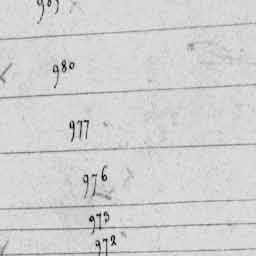 980
977
976
973
972